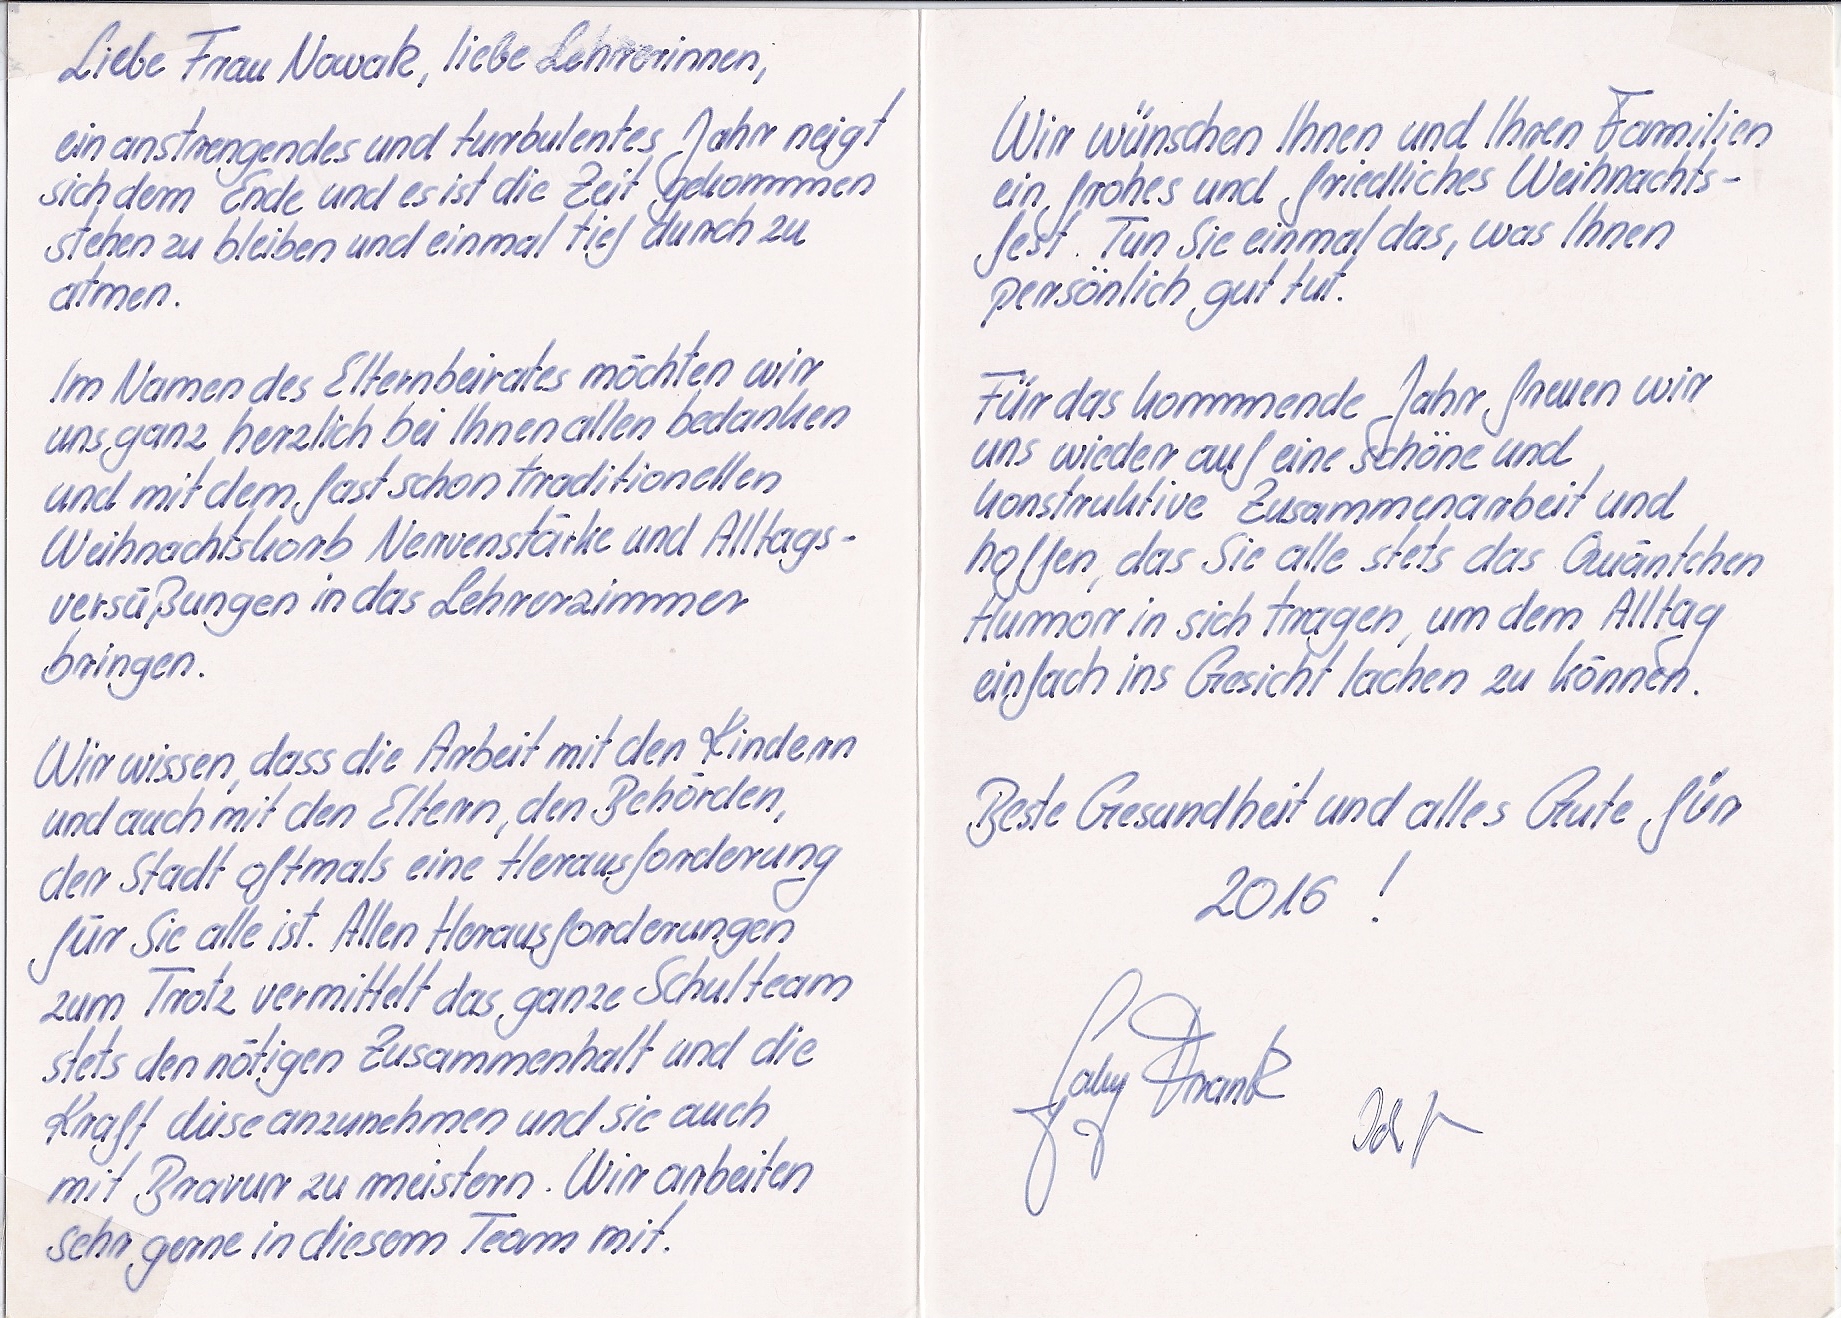 Liebe Frau Nowak, liebe Lehrerinnen,
ein anstrengendes und turbulentes Jahr neigt
sich dem Ende und es ist die Zeit gekommen
stehen zu bleiben und einmal tief durch zu
atmen.
Im Namen des Elternbeirates möchten wir
uns ganz herzlich bei Ihnen allen bedanken
und mit dem fast schon traditionellen
Weihnachtskorb Nervenstärke und Alltags-
versüßungen in das Lehrerzimmer
bringen.
Wir wissen, dass die Arbeit mit den Kindern
und auch mit den Eltern, den Behörden,
der Stadt oftmals eine Herausforderung
für Sie alle ist. Allen Herausforderungen
zum Trotz vermittelt das ganze Schulteam
stets den nötigen Zusammenhalt und die
Kraft diese anzunehmen und sie auch
mit Bravur zu meistern. Wir arbeiten
sehr gerne in diesem Team mit.
Wir wünschen Ihnen und Ihren Familien
ein frohes und friedliches Weihnachts-
fest. Tun Sie einmal das, was Ihnen
persönlich gut tut.
Für das kommende Jahr freuen wir
uns wieder auf eine schöne und
konstruktive Zusammenarbeit und
hoffen, das Sie alle stets das Quäntchen
Humor in sich tragen, um dem Alltag
einfach ins Gesicht lachen zu können.
Beste Gesundheit und alles Gute für
2016 !
Gaby Frank